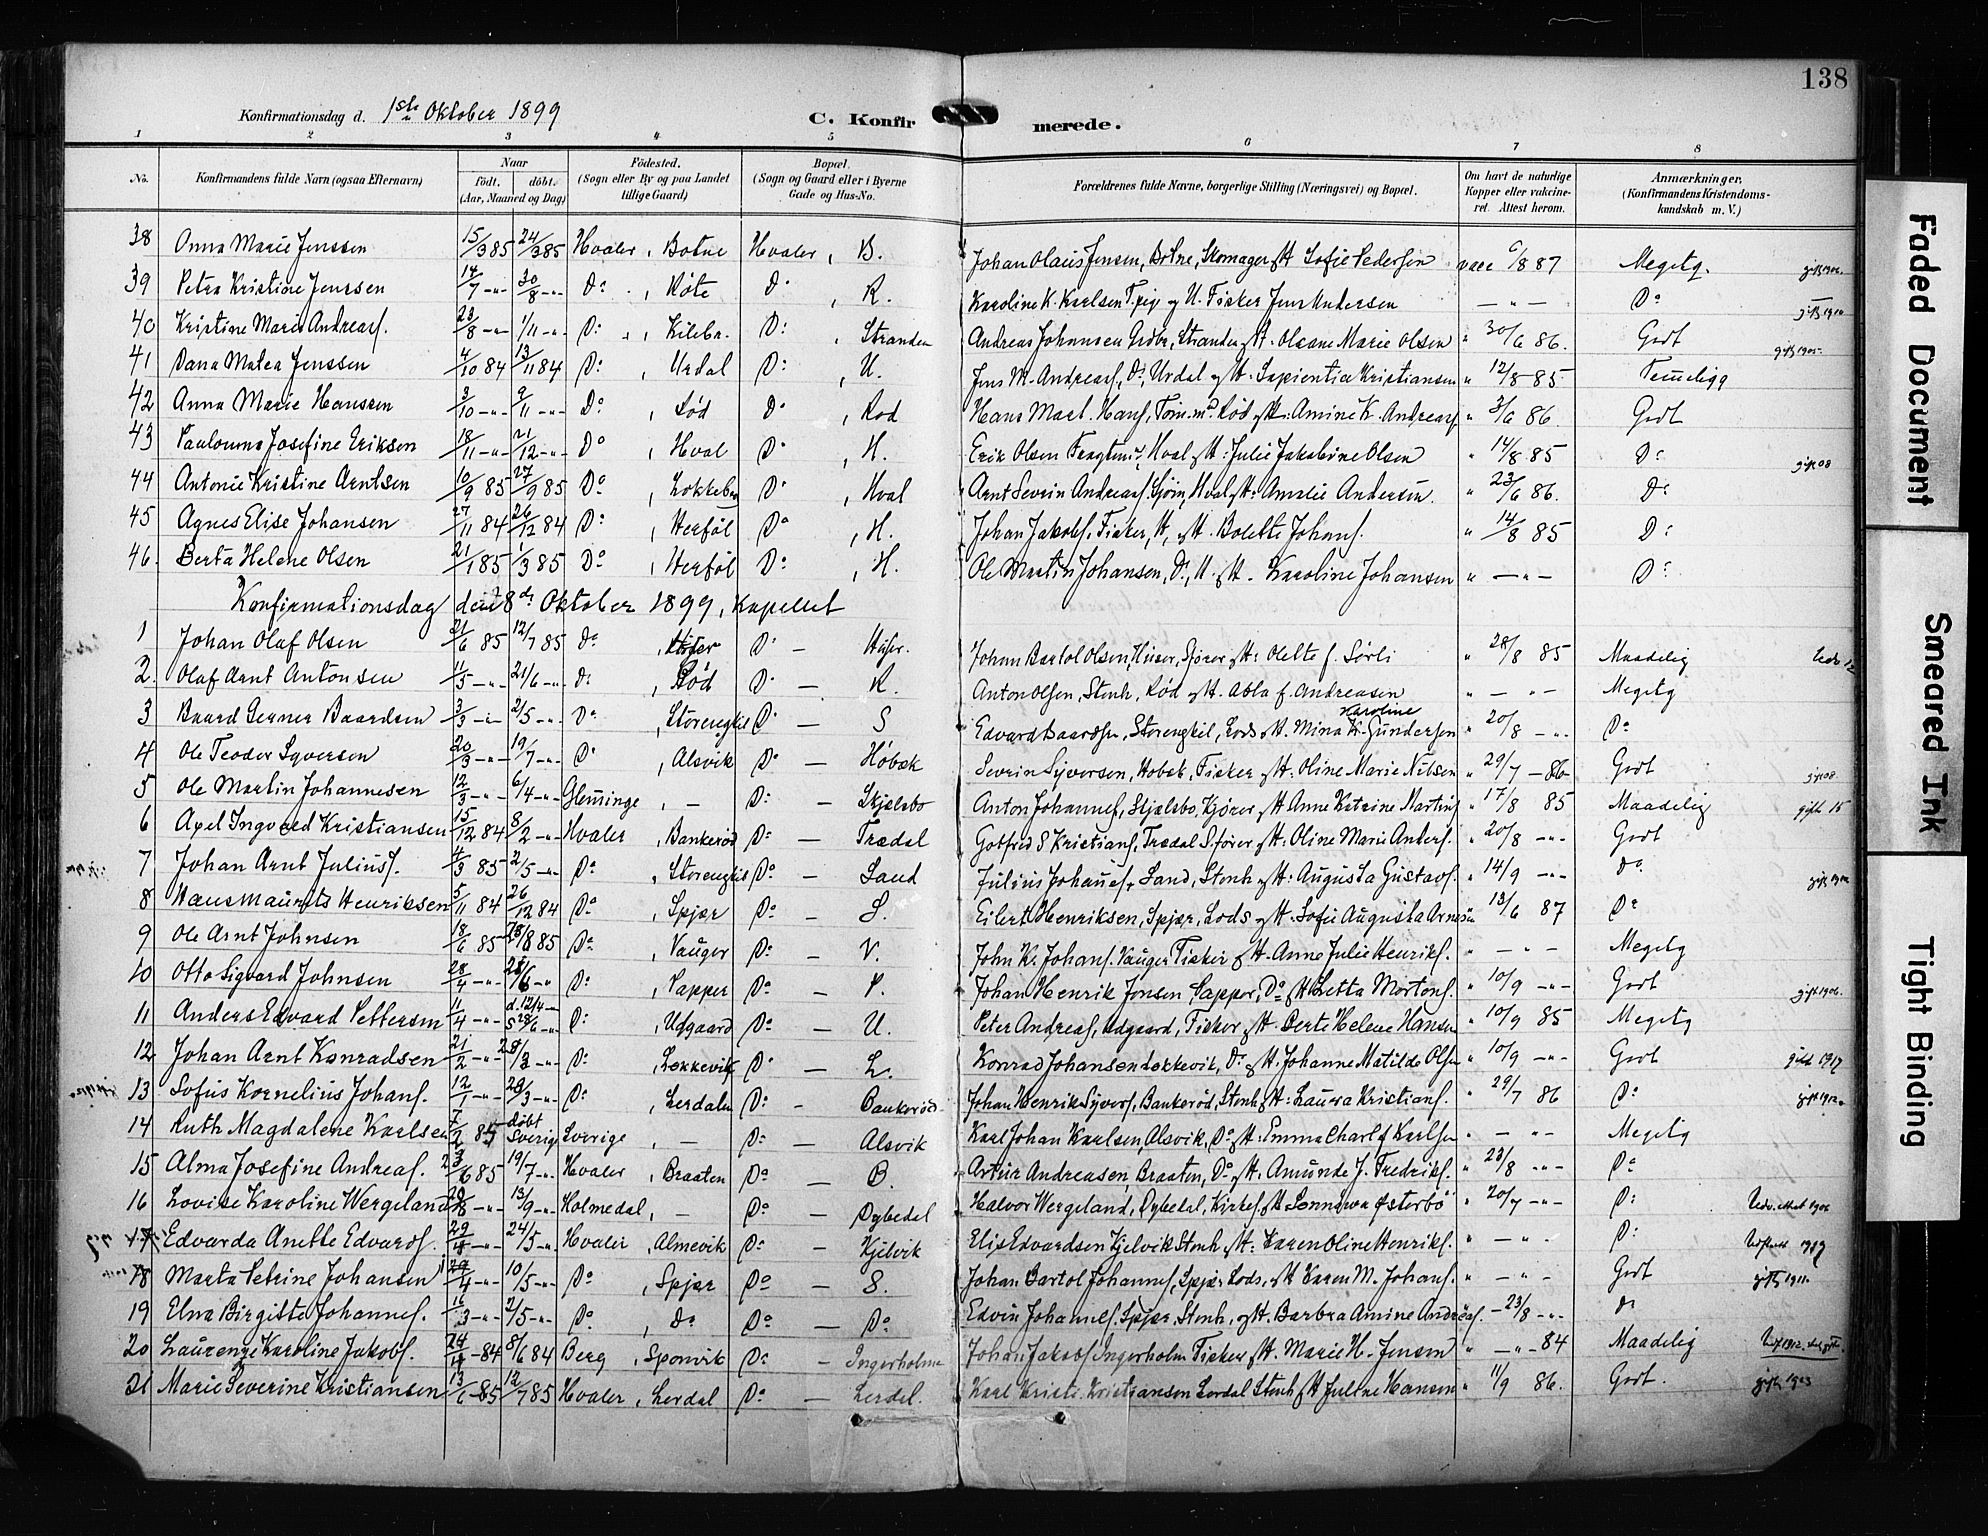 138
Konfirmationsdag d. 1ste Oktober 1899 C. Konfirmerede.
1 2 3 4 5 6 7 8
No. Konfirmandens fulde Navn (ogsaa Efternavn) Naar født. døbt. (Aar, Maaned og Dag) Fødested. (Sogn eller By og paa Landet tillige Gaard) Bopæl. (Sogn og Gaard eller i Byerne Gade og Hus-No. Forældrenes fulde Navne, borgerlige Stilling (Næringsvei) og Bopæl. Om havt de naturlige Kopper eller vakcineret. Attest herom. Anmærkninger. (Konfirmandens Kristendomskundskab m. V.)
38 Anna Marie Jenssen 15/3 85 24/3 85 Hvaler, Botne Hvaler, B. Johan Olaus Jensen, Botne, Skomager og H. Sofie Pedersen vacc 6/8 87 Megetg.
39 Petra Kristine Jenssen 14/7 -"- 30/8 -"- Do , Røte Do , R. Karoline K. Karlsen Pige og U. Fisker Jens Andersen - " - Do
40 Kristine Marie Andreasf. 23/8 -"- 1/11 -"- Do , Kilebu. Do , Stranden Andreas Johansen Grdbr, Stranden og H. Oleane Marie Olsen " 30/6 86. Godt gift 1905
41 Dana Matea Jenssen 4/10 84 13/11 84 Do , Urdal Do , U. Jens M. Andreasf, Do, Urdal og H. Sapientia Kristiansen " 12/8 85 Temeligg
42 Anna Marie Hanssen 3/10 -"- 9/11 -"- Do , Rød Do , Rød Hans Mart. Hansf, Tømmd. Rød og H. Amine K. Andreasf " 3/6 86. Godt
43 Paulouma Josefine Eriksen 18/11 -"- 21/12 -"- Do , Hval Do , H. Erik Olsen Fragtm, Hval og H: Julie Jakobine Olsen " 14/8 85 Do
44 Antonie Kristine Arntsen 10/9 85 27/9 85 Do , Lokkebu Do , Hval Arnt Sevrin Andreasf. Sjøm, Hval og H. Amalie Andersen. " 23/6 86. Do gift 08
45 Agnes Elise Johansen 27/11 84 26/12 84 Do , Herføl Do , H. Johan Jakobf. Fisker, H, og H. Bolette Johansf. " 14/8 85 Do
46. Berta Helene Olsen 21/1 85 1/3 85 Do , Herføl Do , H. Ole Martin Johansen, Do, H. og H. Karoline Johansen " - " - Do
Konfirmationsdag den 8de Oktober 1899, Kapellet
1 Johan Olaf Olsen 21/6 85 12/7 85 Do , Huser Do - Huser. Johan Bartol Olsen, Huser, Sfører og H: Olette f. Sørli " 28/8 85 Maadelig
2. Olaf Arnt Antonsen 11/5 -"- 21/6 -"- Do , Rød Do - R. Anton Olsen, Stenh, Rød og H. Abla f. Andreasen " - " - Megetg
3 Baard Gerner Baardsen 3/3 -"- 2/5 -"- Do , Storengkil Do - S Edvard Baardsen, Storengkil, Lods og H. Mina Karoline K. Gundersen " 20/8 -"- Do
4 Ole Teodor Syversen 20/3 -"- 19/7 -"- Do , Alsvik Do - Høbæk Sevrin Syversen, Høbæk, Fisker og H: Oline Marie Nilsen " 29/7 - 86 Godt
5 Ole Martin Johannesen 12/3 -"- 6/4 -"- Glemminge , - Do - Skjelsbo Anton Johannesf, Skjelsbo, Kjører, og H Anne Katrine Martins " 17/8 85 Maadelig gift 08
6 Axel Ingvard Kristiansen 15/12 84 8/2 -"- Hvaler , Bankerød Do - Trædal Gotfred S Kristiansf, Trædal S.fører og H: Oline Marie Andersf. " 20/8 -"- Godt gift 15
7 Johan Arnt Juliusf. 4/3 85 2/5 -"- Do , Storengkil Do - Sand Julius Johannesf, Sand, Stenh og H: Augusta Gustavsf. " 14/9 -"- Do
8 Hans Maurits Henriksen 5/11 84 26/12 84 Do , Spjær Do - S. Eilert Henriksen, Spjær, Lods og H: Sofie Augusta Arnesen " 13/6 87 Do
9 Ole Arnt Johnsen 18/6 85 /8 85 Do , Vauger Do - V. John K. Johansf. Vauger Fisker og H. Anne Julie Henriksf. " - " - Megetg
10 Otto Sigvard Johnsen 28/4 -"- /6 -"- Do , Papper Do - P. Johan Henrik Jonsen Papper, Do og H Letta Mortensf. " 10/9 -"- Godt gift 1906.
11 Anders Edvard Pettersen 11/4 -"- d. 12/4 -"- s 28/6 -"- Do , Udgaard Do - U. Peter Andreasf, Udgaard, Fisker og H. Berte Helene Hansen " 10/9 85 Megetg
12 Johan Arnt Konradsen 21/2 -"- /3 -"- Do , Løkkevik Do - L. Konrad Johansen Løkkevik, Do og H. Johanne Matilde Olsen " 10/9 -"- Godt gift 1917
13 Sofus Kornelius Johansf. 12/1 -"- 29/3 -"- Do , Lerdalen Do - Bankerød Johan Henrik Syversf, Bankerød, Stenh og H: Laura Kristiansf. " 29/7 86 Do gift 1912
14 Ruth Magdalene Karlsen 7/2 85 døbt Sverig Sverige , - Do - Alsvik Karl Johan Karlsen, Alsvik, Do og H: Emma Charl f Karlsen " - " - Megetg
15 Alma Josefine Andreasf. 23/6 85 19/7 -"- Hvaler , Braaten Do - B. Artur Andreasen, Braaten, Do og H. Amunde J. Fredriksf. " 23/8 -"- Do
16 Lovise Karoline Wergeland /8 -"- 13/9 -"- Holmedal, - Do - Dybedal Halvor Wergeland, Dybedal, Kirkes. og H Lonnewa Østerbø " 20/7 -"- Do
17 Edvarda Anette Edvardsf. 29/4 -"- 24/5 -"- Hvaler , Almevik Do - Kjelvik Elis Edvardsen Kjelvik Stenh og H: Karen Oline Henriksf. " - " - Do
18 Marta Petrine Johansen 29/4 -"- 10/5 -"- Do , Spjær Do - S. Johan Bartol Johannesf, Spjær Lods, og H Karen M. Johansf. " - " - Godt gift 1911
19 Elna Birgitte Johannesf. 16/3 -"- 2/5 -"- Do , Do Do - Do Edvin Johannesf. Spjær, Stenh, og H. Barbra Amine Andreasf. - 23/8 -"- Do
20 Laurenze Karoline Jakobsf. 24/4 - 84 8/6 84 Berg , Sponvik Do - Ingerholmen Johan Jakobsf Ingerholm Fisker og H. Marie H. Jensen " - " - 84 Maadelig
21 Marie Severine Kristiansen 13/6 - 85 12/7 85 Hvaler , Lerdal Do - Lerdal. Karl Kristi. Kristiansen Lerdal Stenh og H Juline Hansen " 11/9 86. Godt. gift 1923
Faded Document
Smeared Ink
Tight Binding